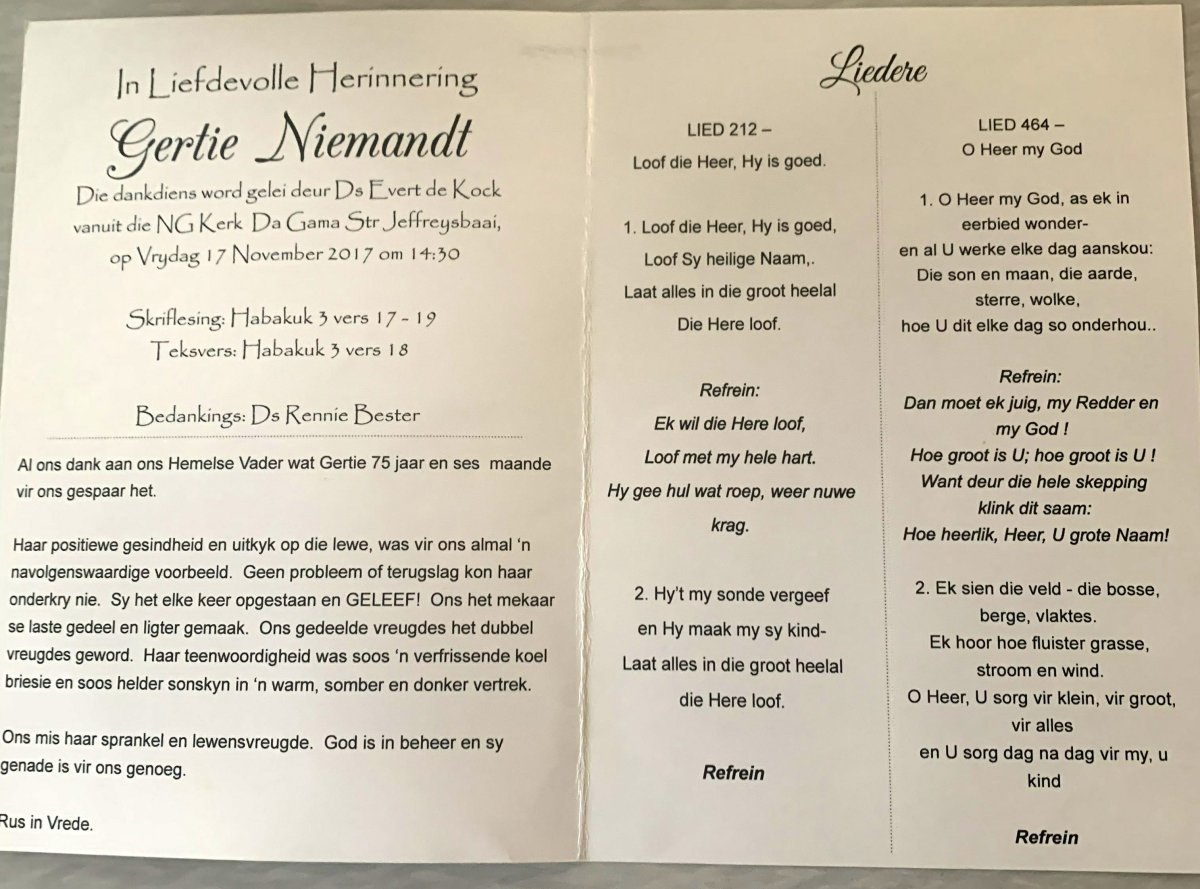 In Liefdevolle Herinnering
Gertie Niemandt
Die dankdiens word gelei deur Ds Evert de Kock
vanuit die NG Kerk Da Gama Str Jeffreysbaai,
op Vrydag 17 November 2017 om 14:30
Skriflesing: Habakuk 3 vers 17 - 19
Teksvers: Habakuk 3 vers 18
Bedankings: Ds Rennie Bester
Al ons dank aan ons Hemelse Vader wat Gertie 75 jaar en ses maande
vir ons gespaar het.
Haar positiewe gesindheid en uitkyk op die lewe, was vir ons almal ‘n
navolgenswaardige voorbeeld. Geen probleem of terugslag kon haar
onderkry nie. Sy het elke keer opgestaan en GELEEF! Ons het mekaar
se laste gedeel en ligter gemaak. Ons gedeelde vreugdes het dubbel
vreugdes geword. Haar teenwoordigheid was soos ‘n verfrissende koel
briesie en soos helder sonskyn in ‘n warm, somber en donker vertrek.
Ons mis haar sprankel en lewensvreugde. God is in beheer en sy
genade is vir ons genoeg.
Rus in Vrede.
Liedere
LIED 212 –
Loof die Heer, Hy is goed.
1. Loof die Heer, Hy is goed,
Loof Sy heilige Naam,.
Laat alles in die groot heelal
Die Here loof.
Refrein:
Ek wil die Here loof,
Loof met my hele hart.
Hy gee hul wat roep, weer nuwe
krag.
2. Hy’t my sonde vergeef
en Hy maak my sy kind-
Laat alles in die groot heelal
die Here loof.
Refrein
LIED 464 –
O Heer my God
1. O Heer my God, as ek in
eerbied wonder-
en al U werke elke dag aanskou:
Die son en maan, die aarde,
sterre, wolke,
hoe U dit elke dag so onderhou..
Refrein:
Dan moet ek juig, my Redder en
my God !
Hoe groot is U; hoe groot is U !
Want deur die hele skepping
klink dit saam:
Hoe heerlik, Heer, U grote Naam!
2. Ek sien die veld - die bosse,
berge, vlaktes.
Ek hoor hoe fluister grasse,
stroom en wind.
O Heer, U sorg vir klein, vir groot,
vir alles
en U sorg dag na dag vir my, u
kind
Refrein